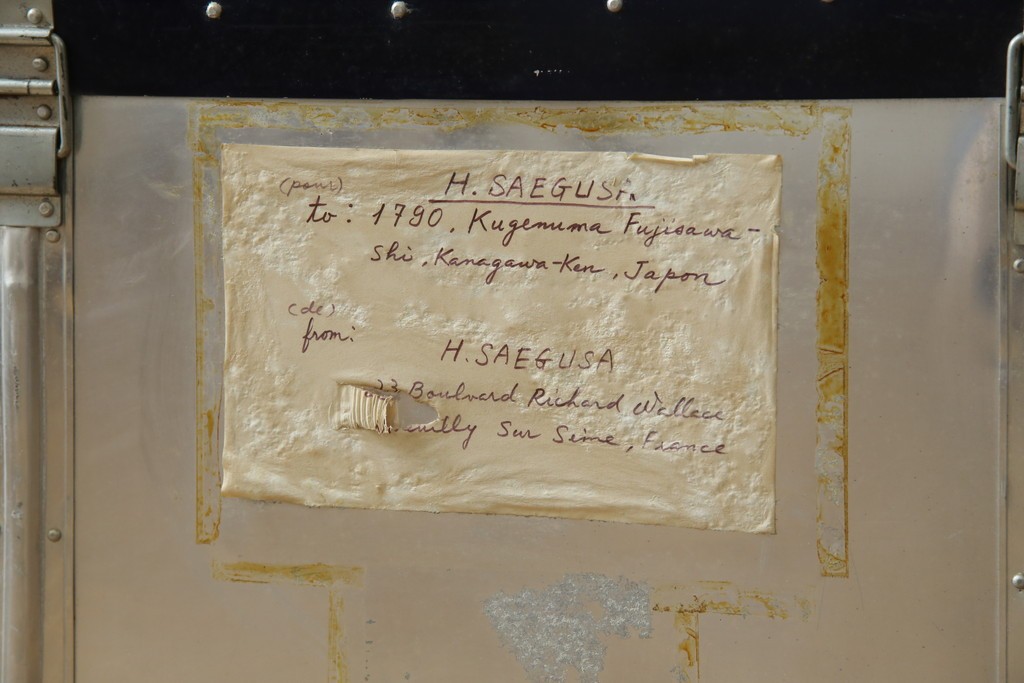 (pour) H. SAEGUSA
to: 1790, Kugenuma Fujisawa-
shi, Kanagawa-Ken, Japon
(de)
from:
H. SAEGUSA
23 Boulvard Richard Wallace
Sur Seine, France